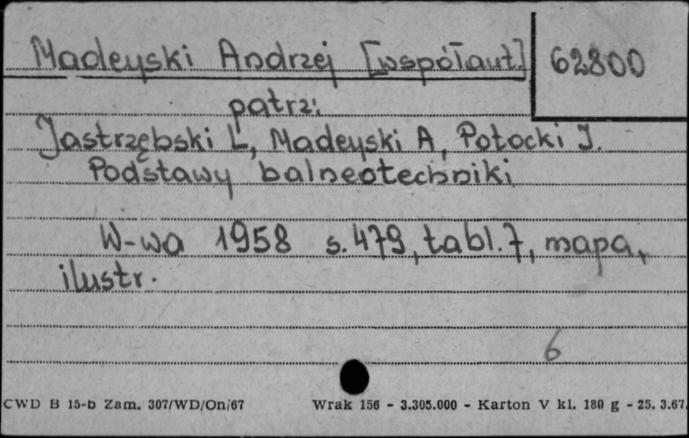 Madeyski Andrzej [współaut.] 62800
patrz:
Jastrzębski L, Madeyski A, Potocki J.
Podstawy balneotechniki
W-wa 1958 s. 479, tabl. 7, mapa,
ilustr.
6
CWD B 15-b Zam. 307/WD/On/67 Wrak 156 - 3.305.000 - Karton V kl. 180 g - 25. 3.67